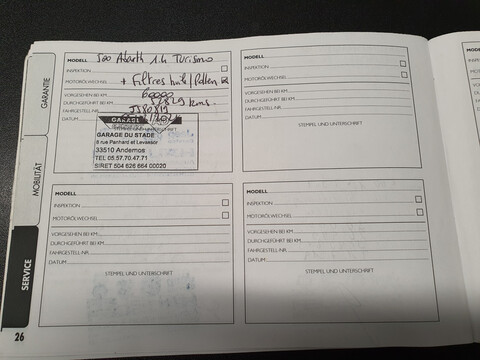 GARANTIE
MOBILITÄT
SERVICE
MODELL 500 Abarth 1.4 Turismo
INSPEKTION
MOTORÖLWECHSEL + Filtres huile/Pollen
VORGESEHEN BEI KM 60000
DURCHGEFÜHRT BEI KM kms
FAHRGESTELL-NR.
DATUM
GARAGE
STEMPEL UND UNTERSCHRIFT
GARAGE DU STADE
8 rue Panhard et Levassor
33510 Andernos
TEL 05.57.70.47.71
SIRET 504 626 664 00020
MODELL
INSPEKTION
MOTORÖLWECHSEL
VORGESEHEN BEI KM
DURCHGEFÜHRT BEI KM
FAHRGESTELL-NR.
DATUM
STEMPEL UND UNTERSCHRIFT
MODELL
INSPEKTION
MOTORÖLWECHSEL
VORGESEHEN BEI KM
DURCHGEFÜHRT BEI KM
FAHRGESTELL-NR.
DATUM
STEMPEL UND UNTERSCHRIFT
MODELL
INSPEKTION
MOTORÖLWECHSEL
VORGESEHEN BEI KM
DURCHGEFÜHRT BEI KM
FAHRGESTELL-NR.
DATUM
STEMPEL UND UNTERSCHRIFT
26